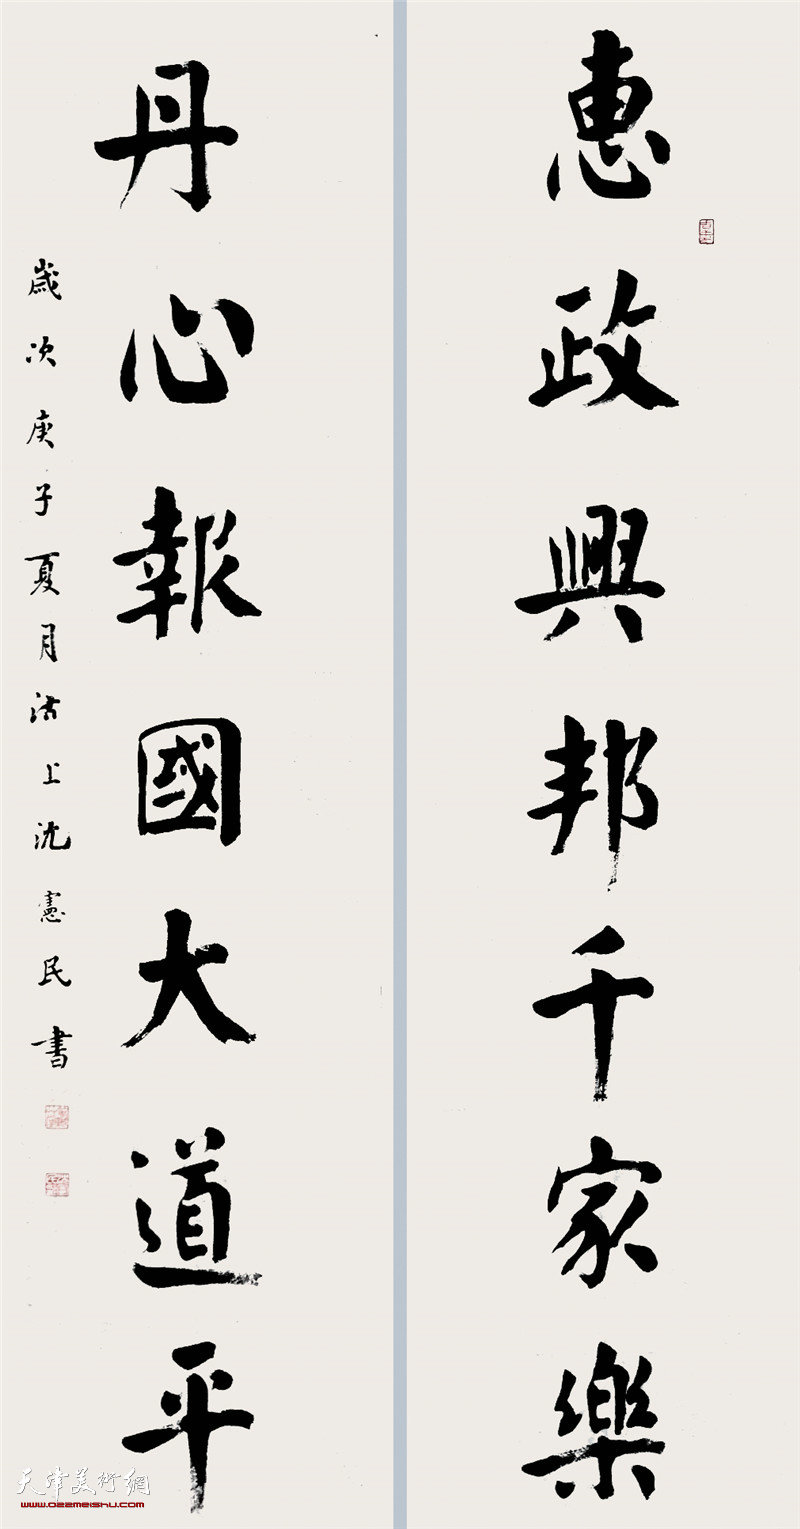 惠政興邦千家樂
丹心報國大道平
歲次庚子夏月沽上沈憲民書
天津美術網
www.022meishu.com